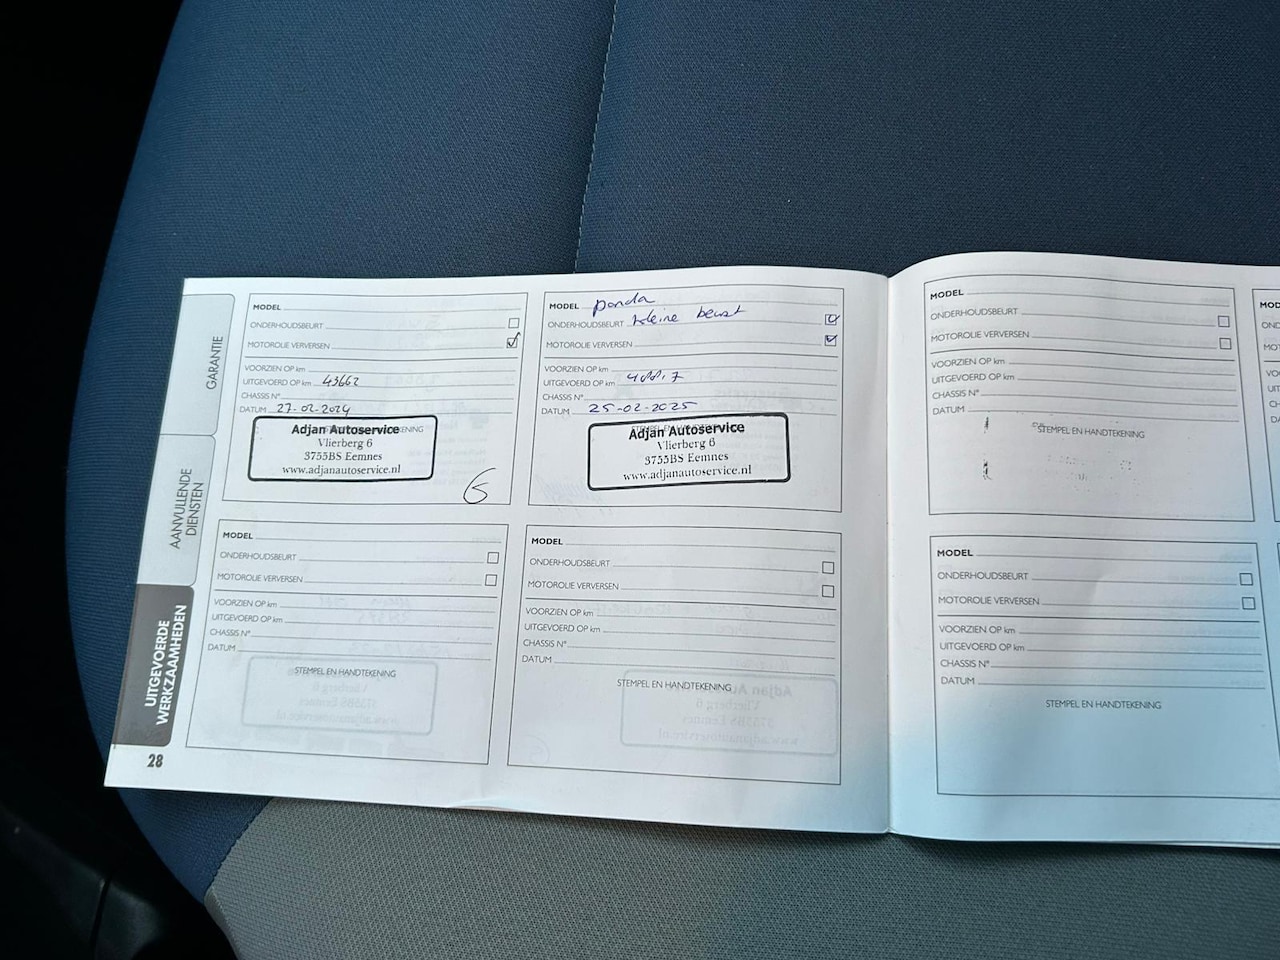 GARANTIE
AANVULLENDE
DIENSTEN
UITGEVOERDE
WERKZAAMHEDEN
28
MODEL
ONDERHOUDSBEURT
MOTOROLIE VERVERSEN
VOORZIEN OP km
UITGEVOERD OP km 43662
CHASSIS N°
DATUM 27-02-2024
Adjan Autoservice
Vlierberg 6
3755BS Eemnes
www.adjanautoservice.nl
MODEL panda
ONDERHOUDSBEURT kleine beurt
MOTOROLIE VERVERSEN
VOORZIEN OP km
UITGEVOERD OP km
CHASSIS N°
DATUM 25-02-2025
Adjan Autoservice
Vlierberg 6
3755BS Eemnes
www.adjanautoservice.nl
MODEL
ONDERHOUDSBEURT
MOTOROLIE VERVERSEN
VOORZIEN OP km
UITGEVOERD OP km
CHASSIS N°
DATUM
STEMPEL EN HANDTEKENING
MODEL
ONDERHOUDSBEURT
MOTOROLIE VERVERSEN
VOORZIEN OP km
UITGEVOERD OP km
CHASSIS N°
DATUM
STEMPEL EN HANDTEKENING
MODEL
ONDERHOUDSBEURT
MOTOROLIE VERVERSEN
VOORZIEN OP km
UITGEVOERD OP km
CHASSIS N°
DATUM
STEMPEL EN HANDTEKENING
MODEL
ONDERHOUDSBEURT
MOTOROLIE VERVERSEN
VOORZIEN OP km
UITGEVOERD OP km
CHASSIS N°
DATUM
STEMPEL EN HANDTEKENING